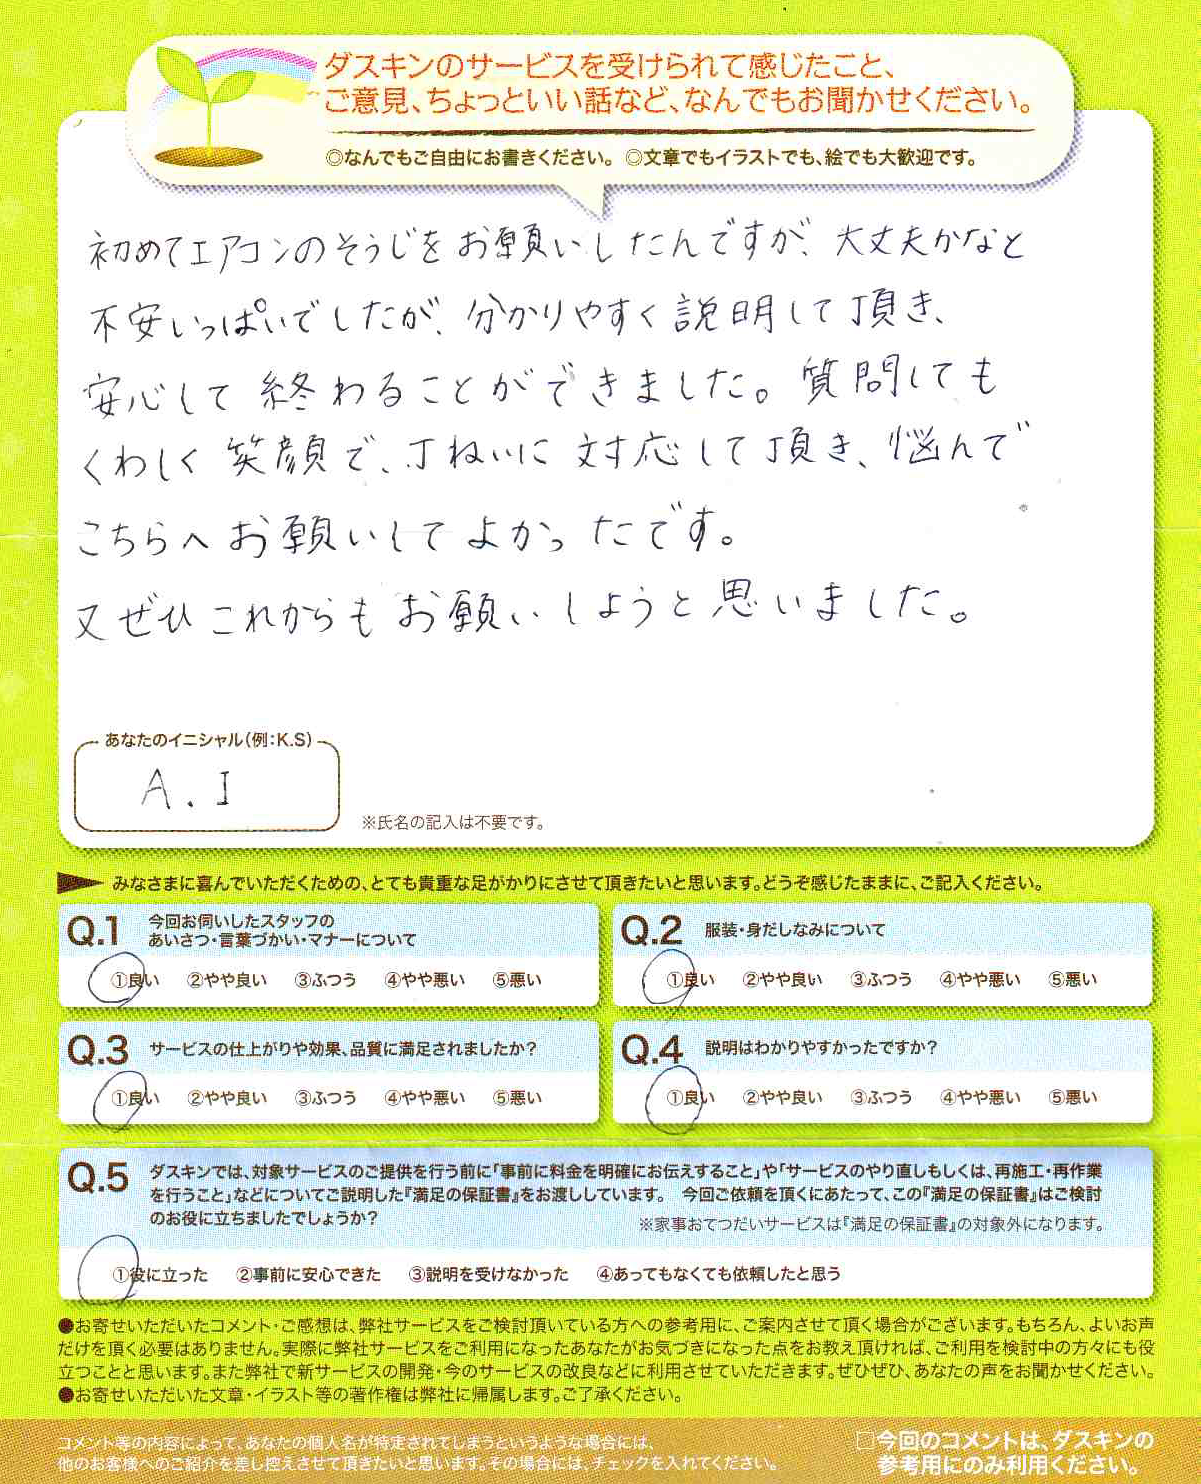 ダスキンのサービスを受けられて感じたこと、
ご意見、ちょっといい話など、なんでもお聞かせください。
◎なんでもご自由にお書きください。 ◎文章でもイラストでも、絵でも大歓迎です。
初めてエアコンのそうじをお願いしたんですが、大丈夫かなと
不安いっぱいでしたが、分かりやすく説明して頂き、
安心して終わることができました。質問しても
くわしく笑顔で、丁ねいに対応して頂き、悩んで
こちらへお願いしてよかったです。
又ぜひこれからもお願いしようと思いました。
あなたのイニシャル(例:K.S)
A.I
※氏名の記入は不要です。
みなさまに喜んでいただくための、とても貴重な足がかりにさせて頂きたいと思います。どうぞ感じたままに、ご記入ください。
Q.1 今回お伺いしたスタッフの
あいさつ・言葉づかい・マナーについて
①良い ②やや良い ③ふつう ④やや悪い ⑤悪い
Q.2 服装・身だしなみについて
①良い ②やや良い ③ふつう ④やや悪い ⑤悪い
Q.3 サービスの仕上がりや効果、品質に満足されましたか?
①良い ②やや良い ③ふつう ④やや悪い ⑤悪い
Q.4 説明はわかりやすかったですか?
①良い ②やや良い ③ふつう ④やや悪い ⑤悪い
Q.5 ダスキンでは、対象サービスのご提供を行う前に「事前に料金を明確にお伝えすること」や「サービスのやり直しもしくは、再施工・再作業
を行うこと」などについてご説明した『満足の保証書』をお渡ししています。 今回ご依頼を頂くにあたって、この『満足の保証書』はご検討
のお役に立ちましたでしょうか?
※家事おてつだいサービスは『満足の保証書』の対象外になります。
①役に立った ②事前に安心できた ③説明を受けなかった ④あってもなくても依頼したと思う
●お寄せいただいたコメント・ご感想は、弊社サービスをご検討頂いている方への参考用に、ご案内させて頂く場合がございます。もちろん、よいお声
だけを頂く必要はありません。実際に弊社サービスをご利用になったあなたがお気づきになった点をお教え頂ければ、ご利用を検討中の方々にも役
立つことと思います。また弊社で新サービスの開発・今のサービスの改良などに利用させていただきます。ぜひぜひ、あなたの声をお聞かせください。
●お寄せいただいた文章・イラスト等の著作権は弊社に帰属します。ご了承ください。
コメント等の内容によって、あなたの個人名が特定されてしまうというような場合には、
他のお客様へのご紹介を差し控えさせて頂きたいと思います。その場合には、チェックを入れてください。
□今回のコメントは、ダスキンの
参考用にのみ利用ください。